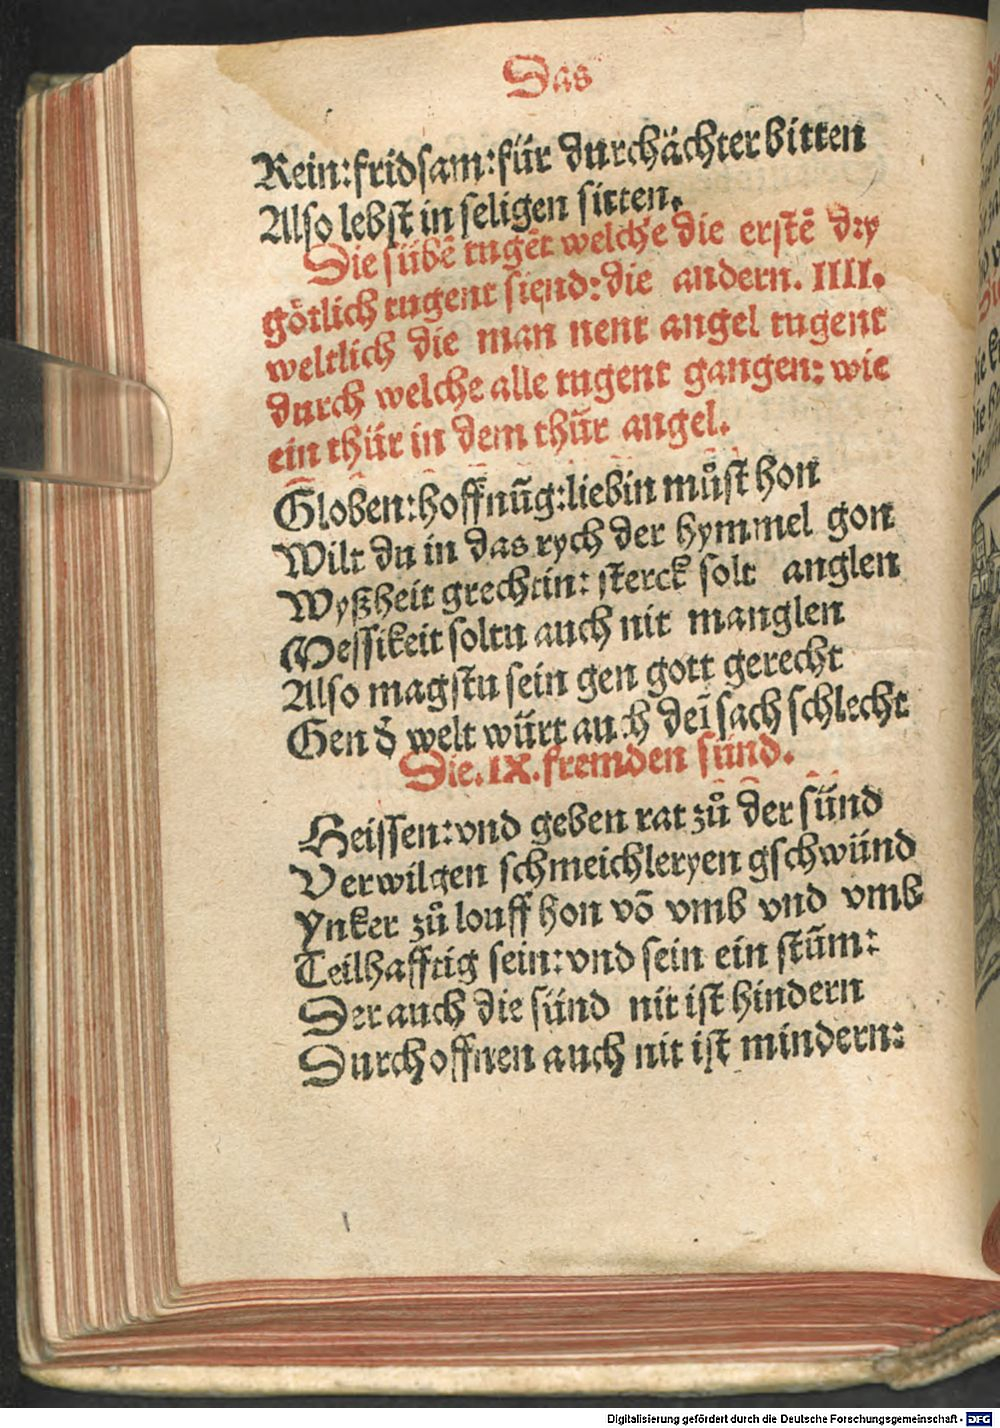 Das
Rein: fridsam: für durchächter bitten
Also lebst in seligen sitten.
Die sübē tugēt welche die erstē dry
götlich tugent siend: die andern. IIII.
weltlich die man nent angel tugent
durch welche alle tugent gangen: wie
ein thür in dem thür angel.
Globen: hoffnūg: liebin můst hon
Wilt du in das rych der hymmel gon
Wyßheit grechtin: sterck solt anglen
Messikeit soltu auch nit manglen
Also magstu sein gen gott gerecht
Gen d̕ welt würt auch deī sach schlecht
Die. IX. fremden sünd.
Heissen: vnd geben rat zů der sünd
Verwilgen schmeichleryen gschwünd
Ynker zů louff hon vō vmb vnd vmb
Teilhafftig sein: vnd sein ein stūm:
Der auch die sünd nit ist hindern
Durch offnen auch nit ist mindern:
Digitalisierung gefördert durch die Deutsche Forschungsgemeinschaft - DFG